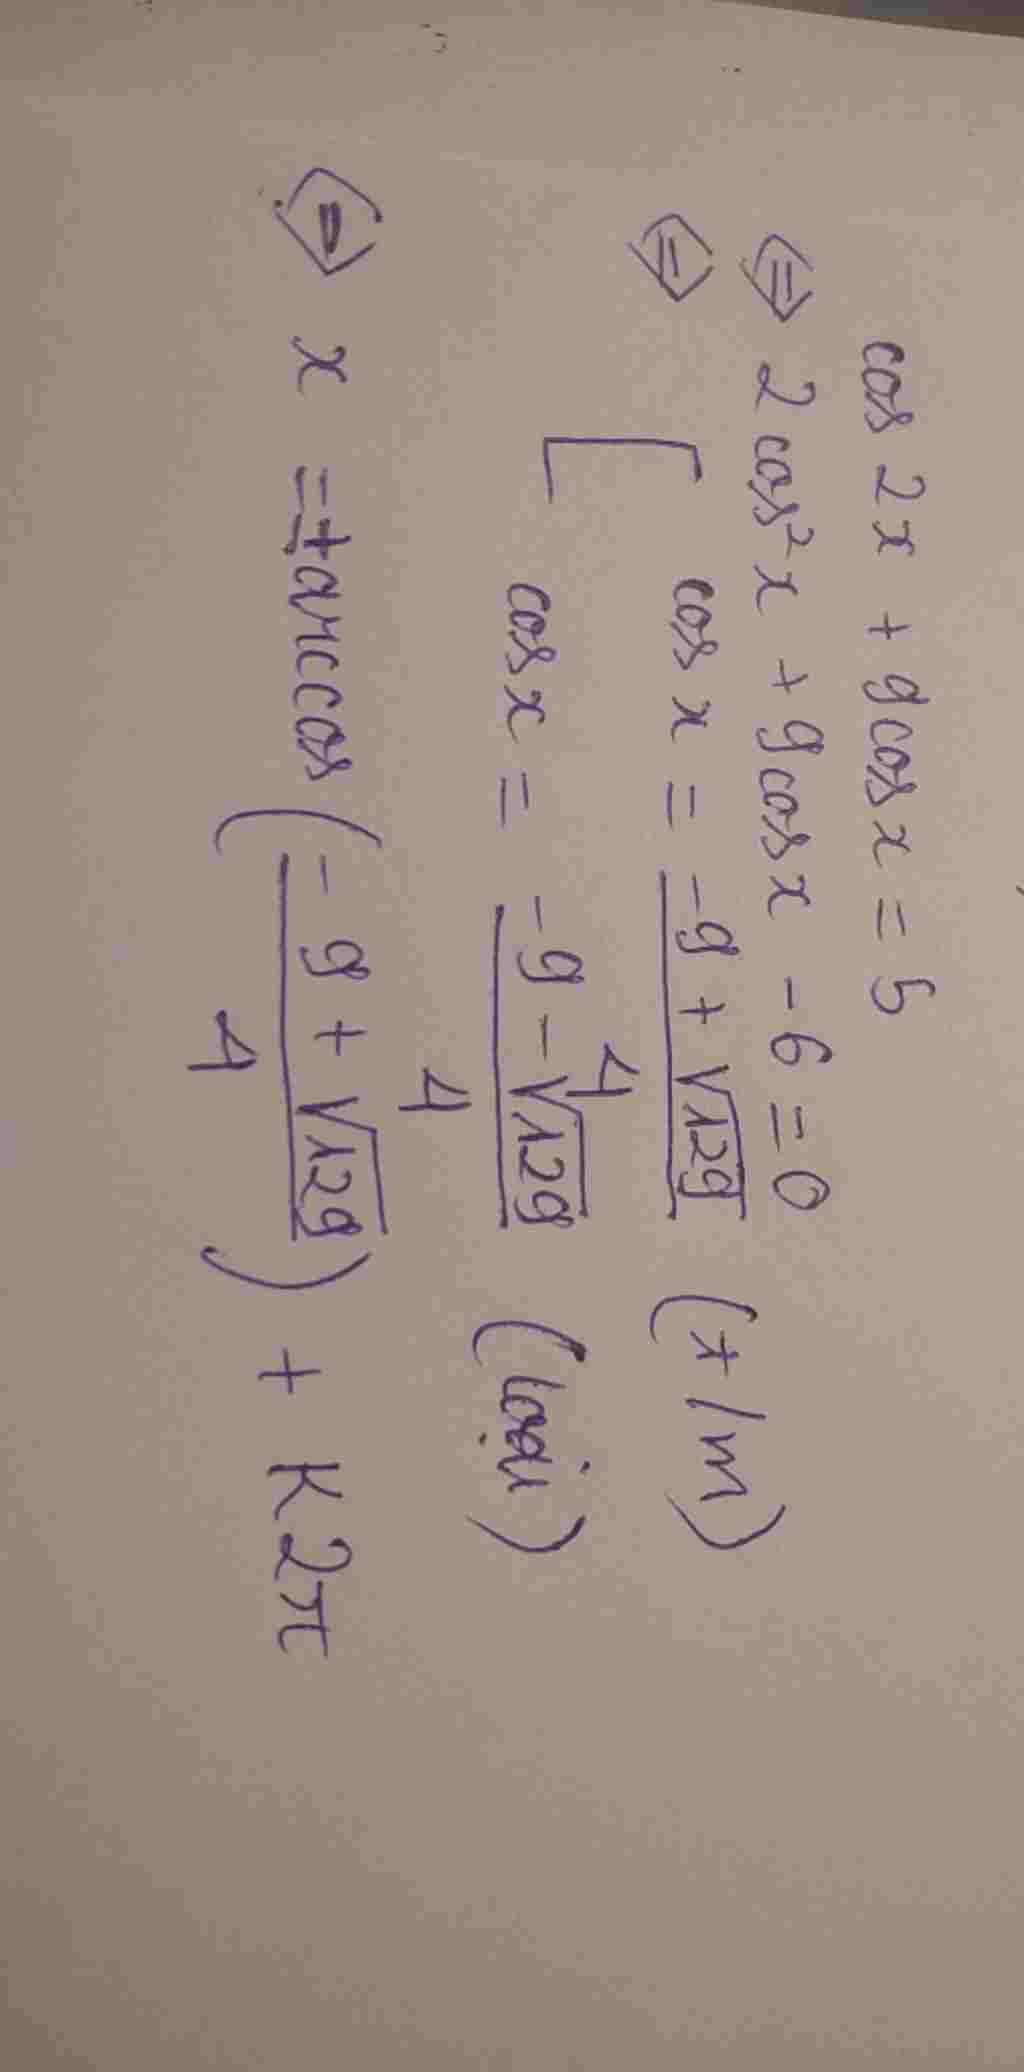 cos 2x + 9cosx = 5
⇔ 2cos²x + 9cosx - 6 = 0
⇔ [ cos x = (-9 + √129)/4 (t/m)
cosx = (-9 - √129)/4 (loại)
⇔ x = ±arccos((-9 + √129)/4) + K2π